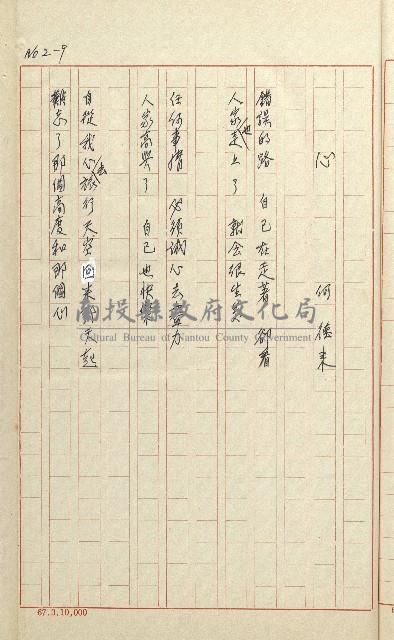 No 2-9
心
何德来
錯誤的路 自己在走著 卻看
人家也走上了 就会很生気
任何事情 必須誠心去盡力
人家高興了 自己也快樂
自從我心去旅行天空回来那天起
難忘了那個高度和那個心
南投縣政府文化局
Cultural Bureau of Nantou County Government
67.3.10,000